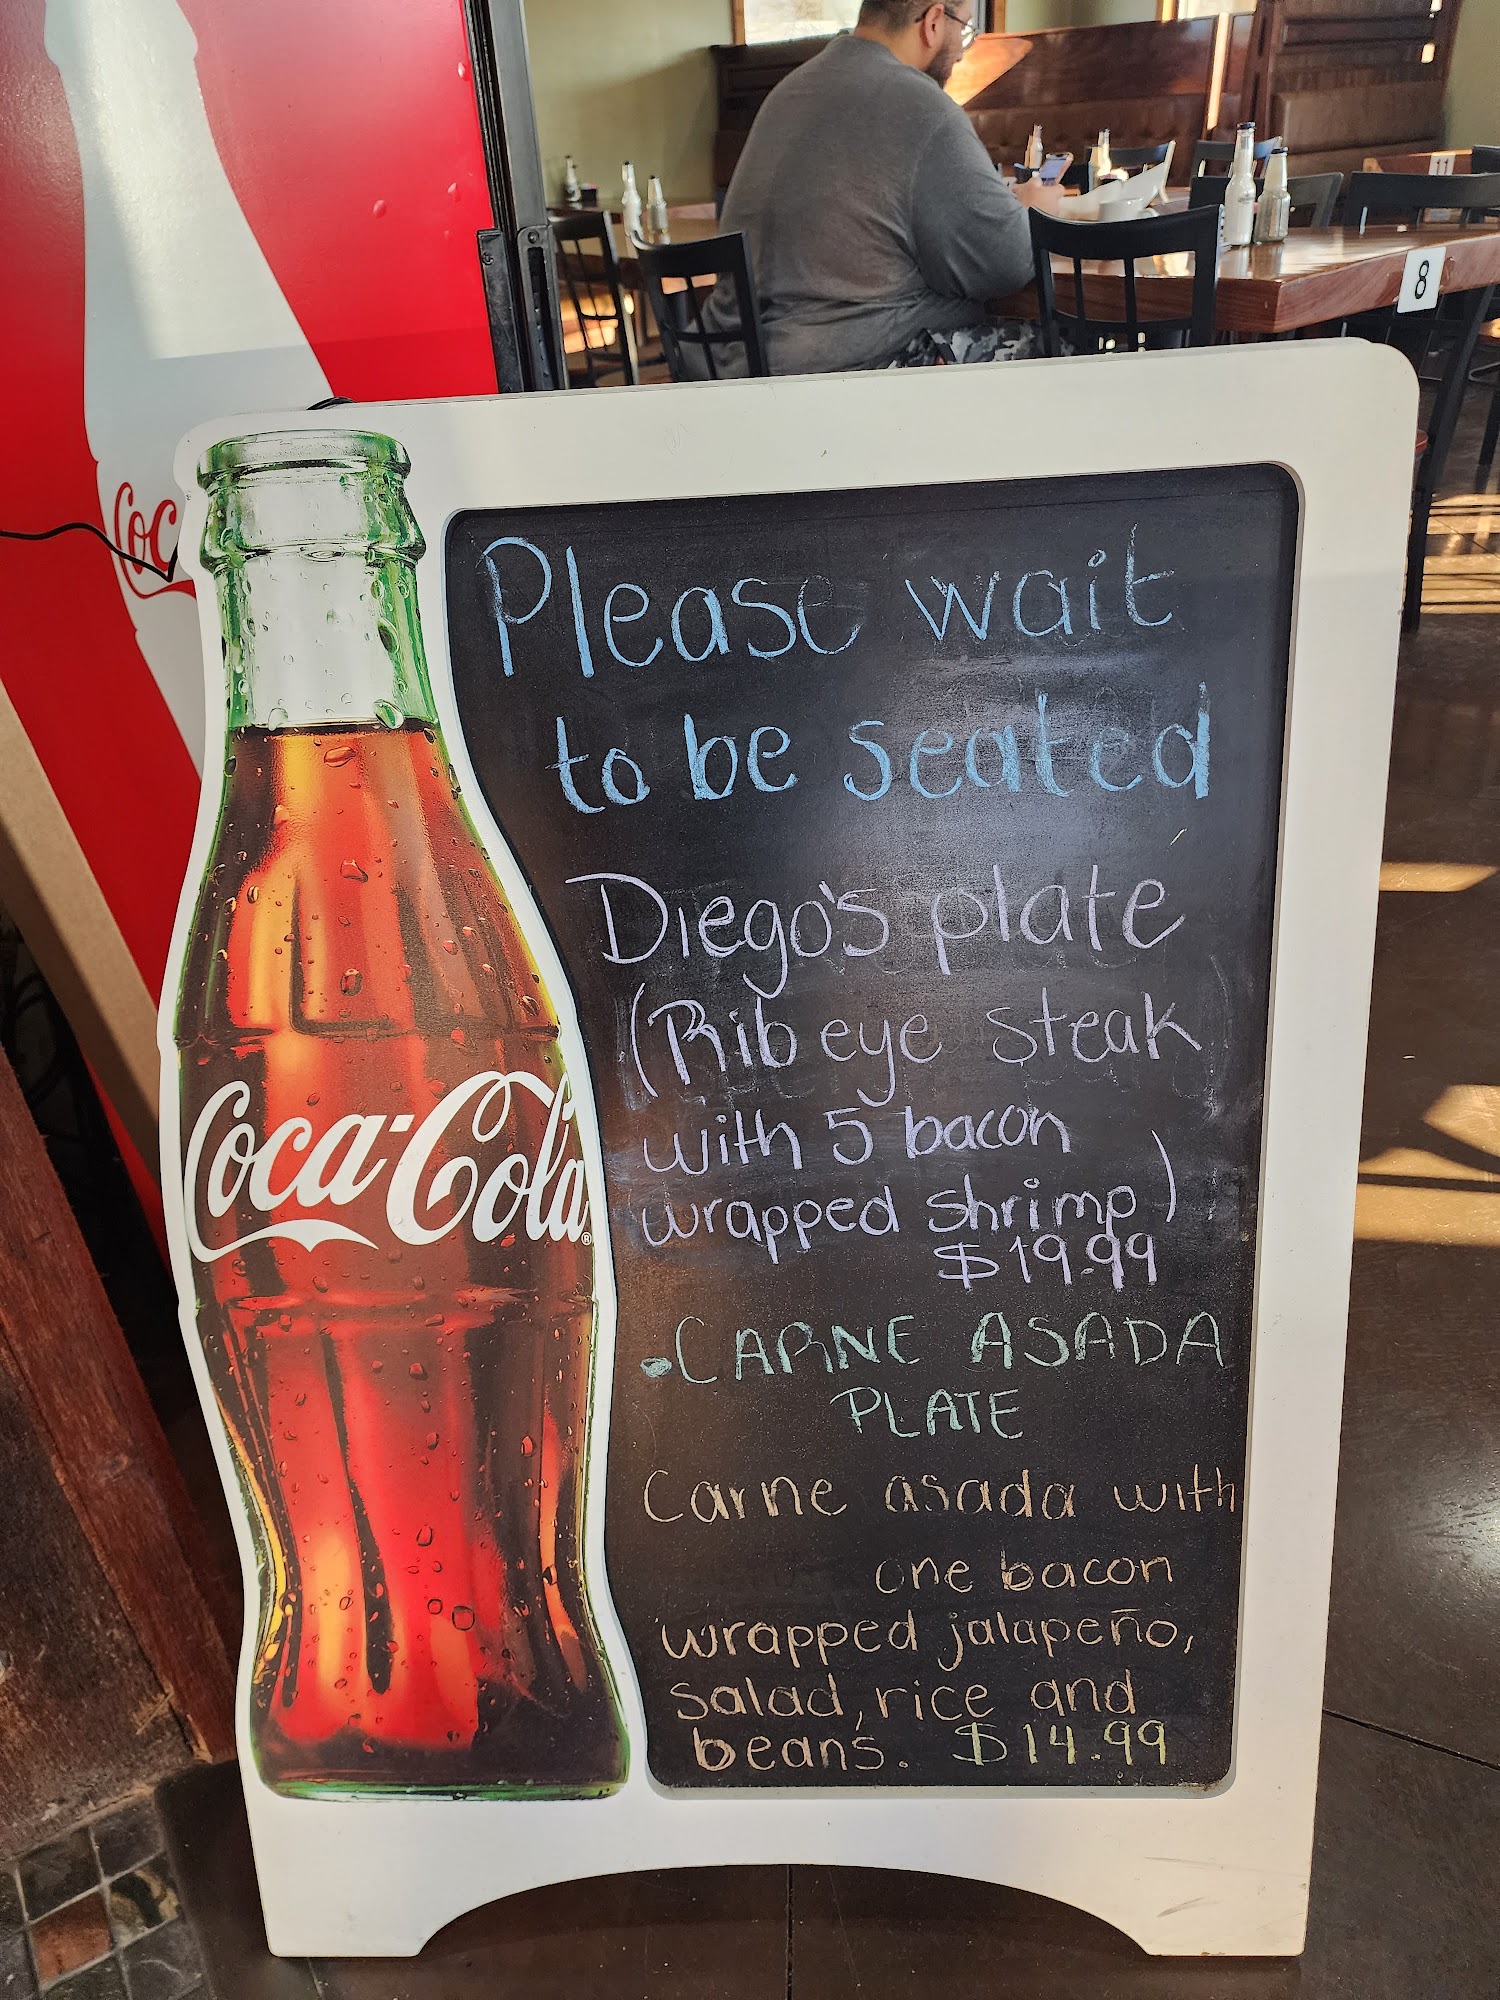 Coc
11
8
Coca-Cola®
Please wait
to be seated
Diego's plate
(Rib eye steak
with 5 bacon
wrapped shrimp)
$19.99
•CARNE ASADA
PLATE
Carne asada with
one bacon
wrapped jalapeño,
salad, rice and
beans. $14.99